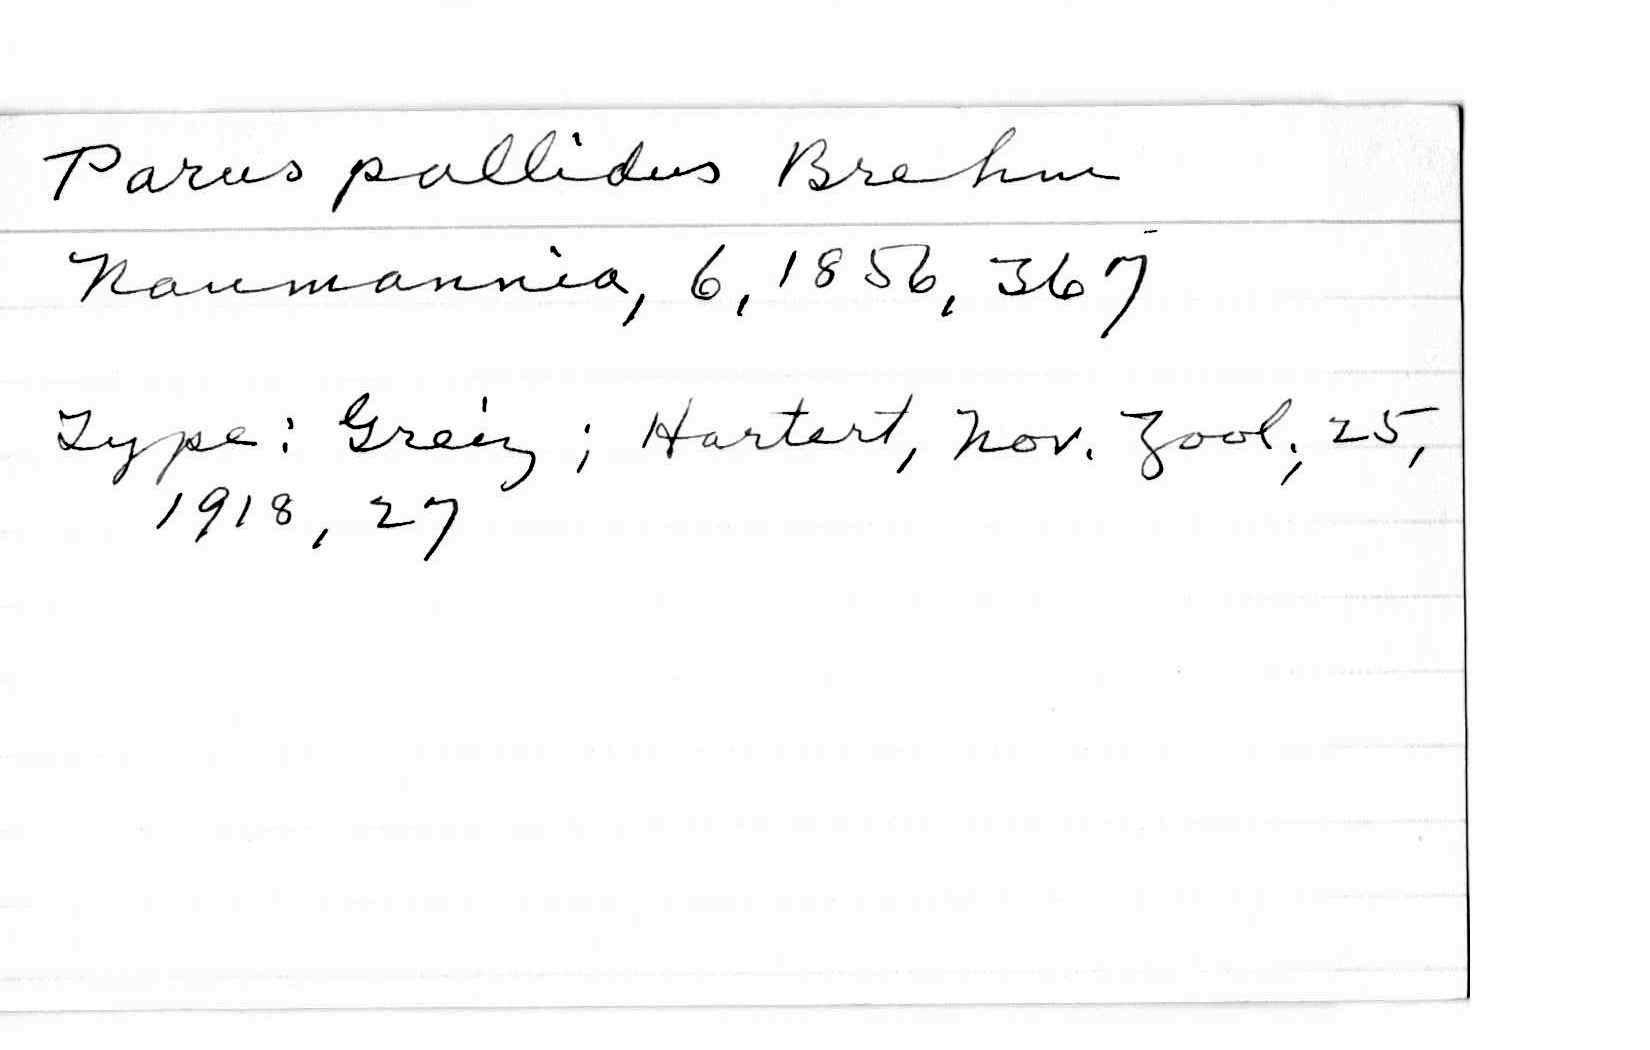 Parus pallidus Brehm
Naumannia, 6, 1856, 367
Type: Greiz; Hartert, Nov. Zool., 25,
1918, 27